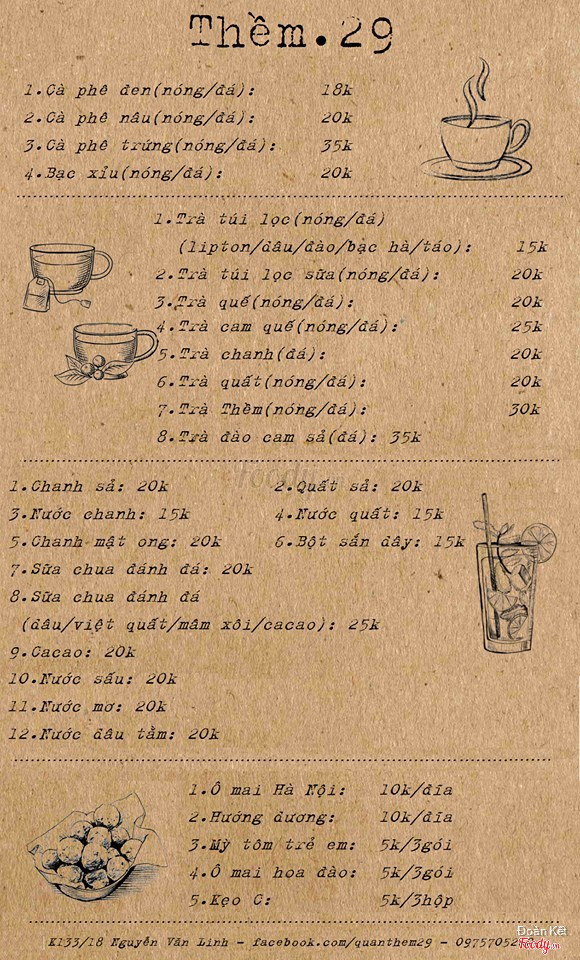 Thềm.29
1.Cà phê đen(nóng/đá): 18k
2.Cà phê nâu(nóng/đá): 20k
3.Cà phê trứng(nóng/đá): 35k
4.Bạc xỉu(nóng/đá): 20k
1.Trà túi lọc(nóng/đá)
(lipton/dâu/đào/bạc hà/táo): 15k
2.Trà túi lọc sữa(nóng/đá): 20k
3.Trà quế(nóng/đá): 20k
4.Trà cam quế(nóng/đá): 25k
5.Trà chanh(đá): 20k
6.Trà quất(nóng/đá): 20k
7.Trà Thềm(nóng/đá): 30k
8.Trà đào cam sả(đá): 35k
foody
1.Chanh sả: 20k 2.Quất sả: 20k
3.Nước chanh: 15k 4.Nước quất: 15k
5.Chanh mật ong: 20k 6.Bột sắn dây: 15k
7.Sữa chua đánh đá: 20k
8.Sữa chua đánh đá
(dâu/việt quất/mâm xôi/cacao): 25k
9.Cacao: 20k
10.Nước sấu: 20k
11.Nước mơ: 20k
12.Nước dâu tằm: 20k
1.Ô mai Hà Nội: 10k/đĩa
2.Hướng dương: 10k/đĩa
3.Mỳ tôm trẻ em: 5k/3gói
4.Ô mai hoa đào: 5k/3gói
5.Kẹo C: 5k/3hộp
Đoàn Kết
K133/18 Nguyễn Văn Linh - facebook.com/quanthem29 - 09757052
Foody.vn